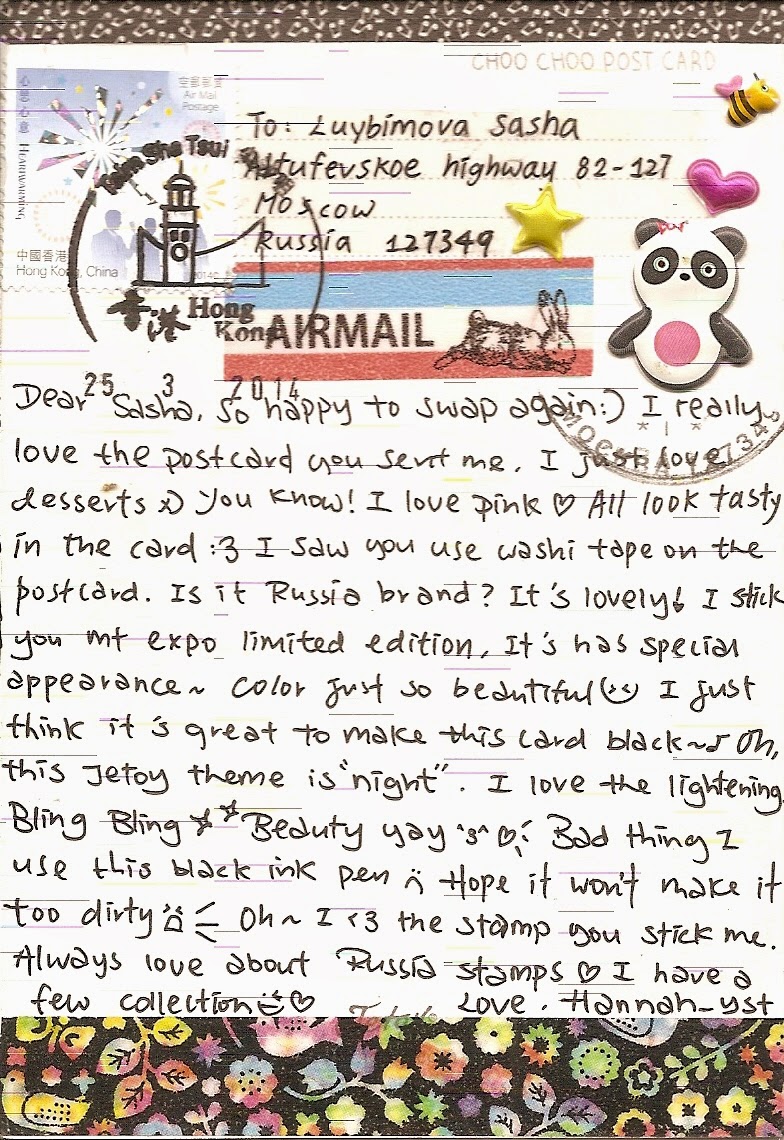 CHOO CHOO POST CARD
心思心意
HEARTWARMING
空郵郵資
Air Mail
Postage
中國香港
Hong Kong, China
2014
Tsim Sha Tsui
香港
Hong
Kong
25 3 2014
To: Luybimova Sasha
Altufevskoe highway 82-127
Moscow
Russia 127349
AIRMAIL
МОСКВА 12734
* 1 *
Dear Sasha, so happy to swap again:) I really
love the postcard you sent me. I just love
desserts xD You know! I love pink ♡ All look tasty
in the card :3 I saw you use washi tape on the
postcard. Is it Russia brand? It's lovely! I stick
you mt expo limited edition, It's has special
appearance~ Color just so beautiful I just
think it's great to make this card black~ Oh,
this Jetoy theme is "night". I love the lightening
Bling Bling ☆☆ Beauty yay 's' ♡! Bad thing I
use this black ink pen Hope it won't make it
too dirty Oh~ I <3 the stamp you stick me.
Always love about Russia stamps ♡ I have a
few collection ♡ Love. Hannah_yst